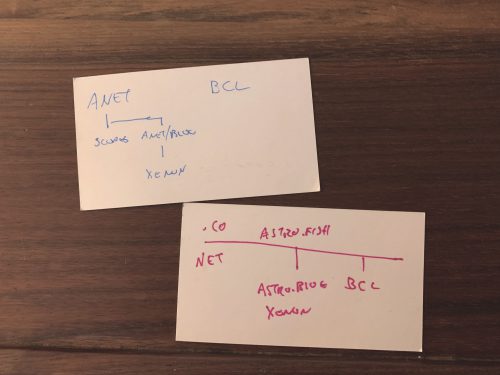 ANET BCL
SCOPES ANET/BLOG
XENON
.CO ASTRO.FISH
NET
ASTRO.BLOG BCL
XENON